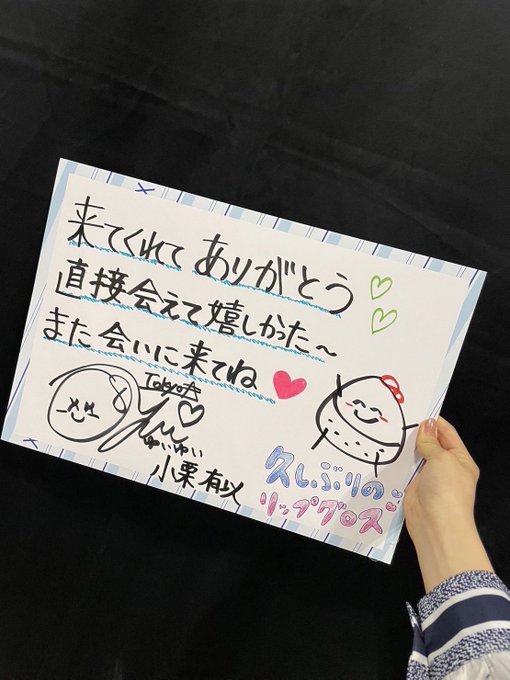 来てくれてありがとう
直接会えて嬉しかった〜
また会いに来てね
ゆいゆい
小栗有以
久しぶりの
リップグロス